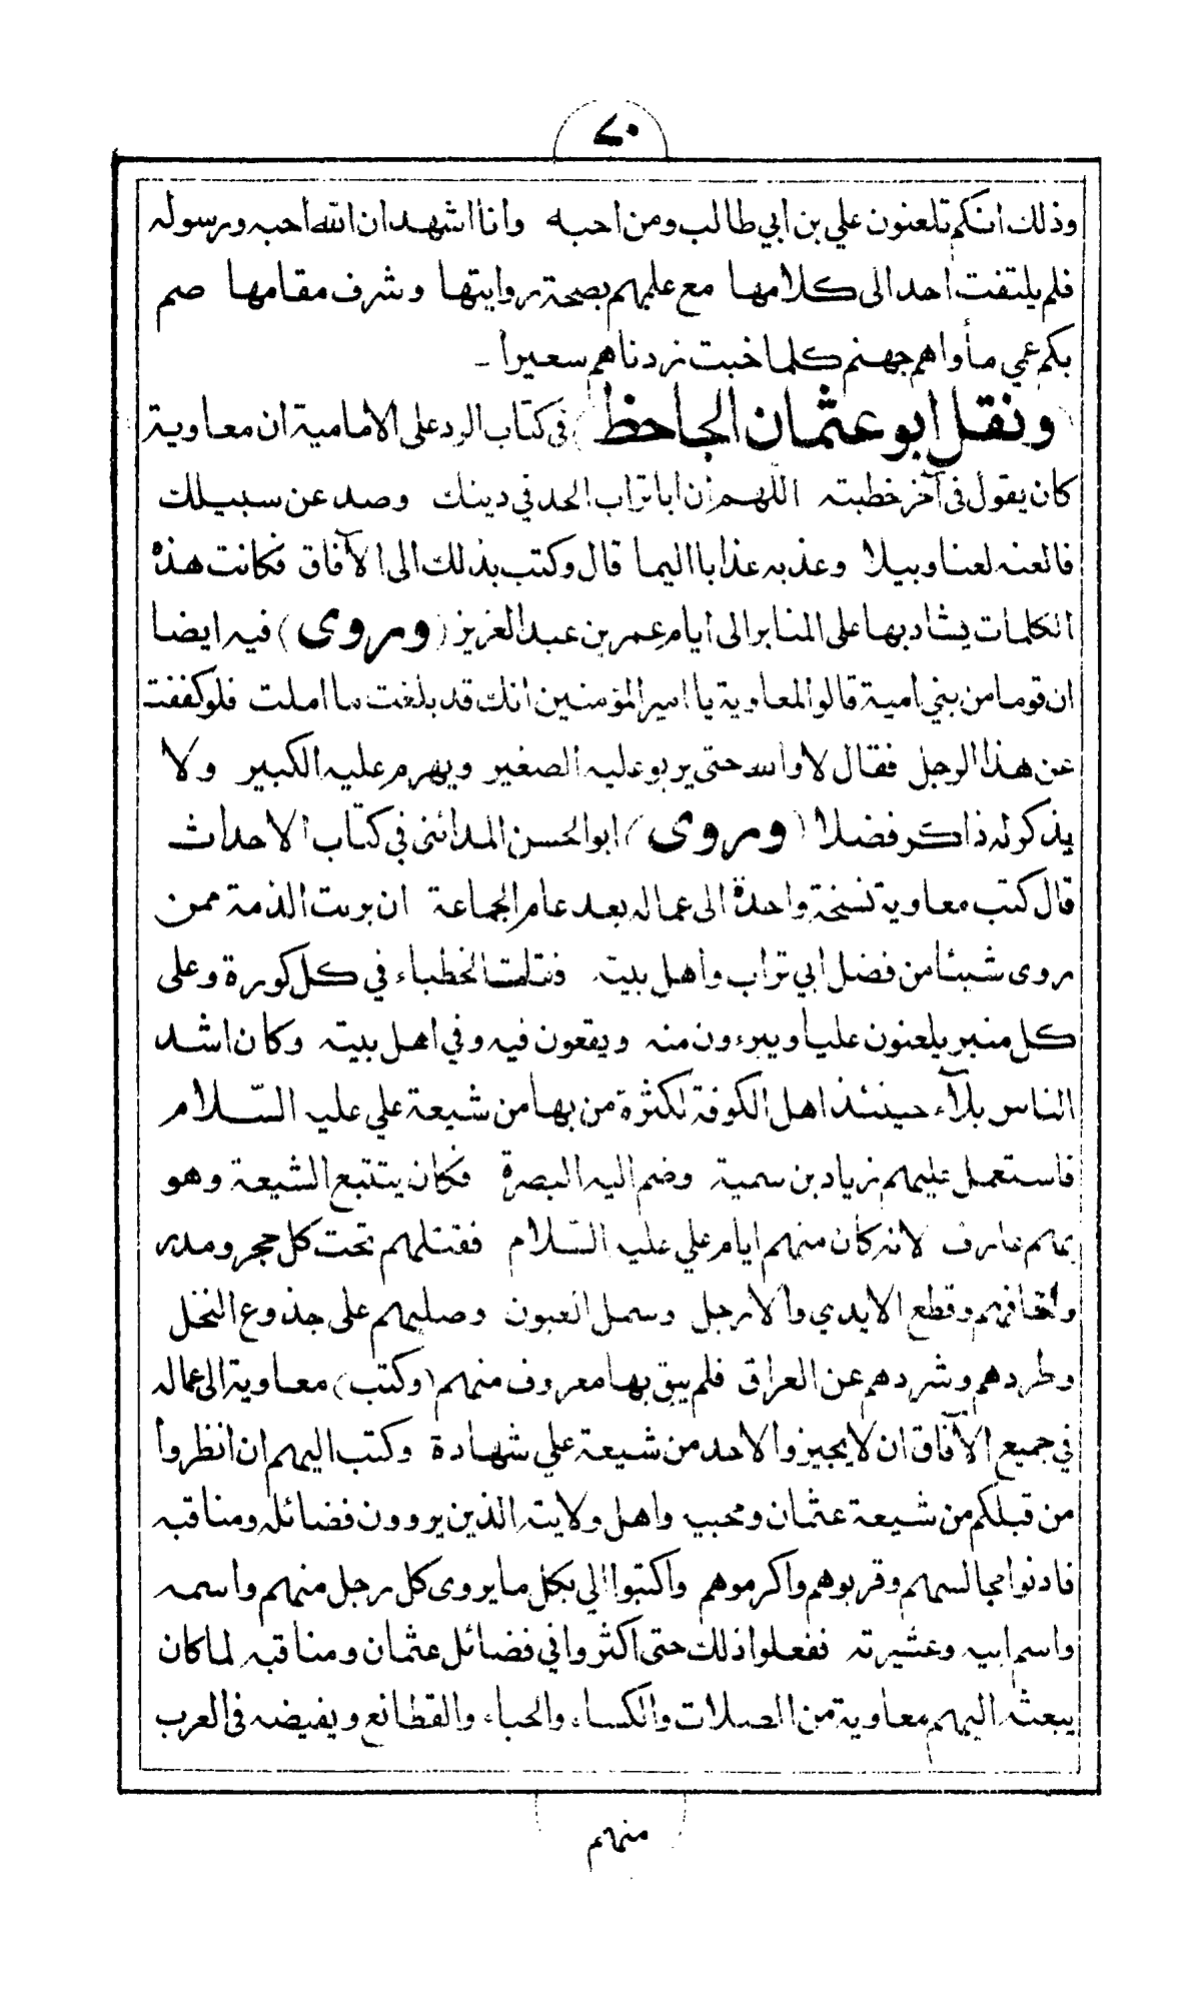 ٧٠
وذلك انكم تلعنون علي بن ابي طالب ومن احبه وانا اشهد ان الله احبه ورسوله
فلم يلتفت احد الى كلامها مع علمهم بصحة روايتها وشرف مقامها صم
بكم عمي مأواهم جهنم كلما خبت زدناهم سعيرا -
(ونقل ابو عثمان الجاحظ) في كتاب الرد على الامامية ان معاوية
كان يقول في آخر خطبته اللهم ان ابا تراب الحد في دينك وصد عن سبيلك
فالعنه لعنا وبيلا وعذبه عذابا اليما قال وكتب بذلك الى الآفاق فكانت هذه
الكلمات يشاد بها على المنابر الى ايام عمر بن عبد العزيز (وروى) فيه ايضا
ان قوما من بني امية قالوا لمعاوية يا امير المؤمنين انك قد بلغت ما املت فلو كففت
عن هذا الرجل فقال لا والله حتى يربو عليه الصغير ويهرم عليه الكبير ولا
يذكر له ذاكر فضلا (وروى) ابو الحسن المدائني في كتاب الاحداث
قال كتب معاوية نسخة واحدة الى عماله بعد عام الجماعة ان برئت الذمة ممن
روى شيئا من فضل ابي تراب واهل بيته فقامت الخطباء في كل كورة وعلى
كل منبر يلعنون عليا ويبرءون منه ويقعون فيه وفي اهل بيته وكان اشد
الناس بلآء حينئذ اهل الكوفة لكثرة من بها من شيعة علي عليه السّلام
فاستعمل عليهم زياد بن سمية وضم اليه البصرة فكان يتتبع الشيعة وهو
بهم عارف لانه كان منهم ايام علي عليه السّلام فقتلهم تحت كل حجر ومدر
وأخافهم وقطع الايدي والارجل وسمل العيون وصلبهم على جذوع النخل
وطردهم وشردهم عن العراق فلم يبق بها معروف منهم (وكتب) معاوية الى عماله
في جميع الآفاق ان لا يجيزوا لاحد من شيعة علي شهادة وكتب اليهم ان انظروا
من قبلكم من شيعة عثمان ومحبيه واهل ولايته الذين يروون فضائله ومناقبه
فادنوا مجالسهم وقربوهم واكرموهم واكتبوا الي بكل ما يروى كل رجل منهم واسمه
واسم ابيه وعشيرته ففعلوا ذلك حتى اكثروا في فضائل عثمان ومناقبه لما كان
يبعثه اليهم معاوية من الصلات والكساء والحباء والقطائع ويفيضه في العرب
منهم